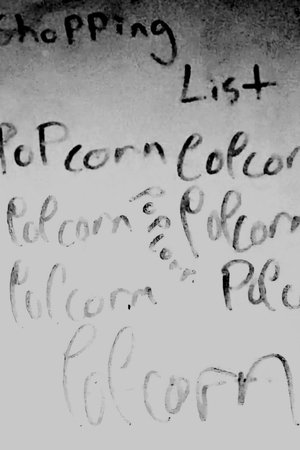 Shopping
List
PoPcorn Popcor
Popcorn Popcorn Popcorn
Popcorn Popc
Popcorn